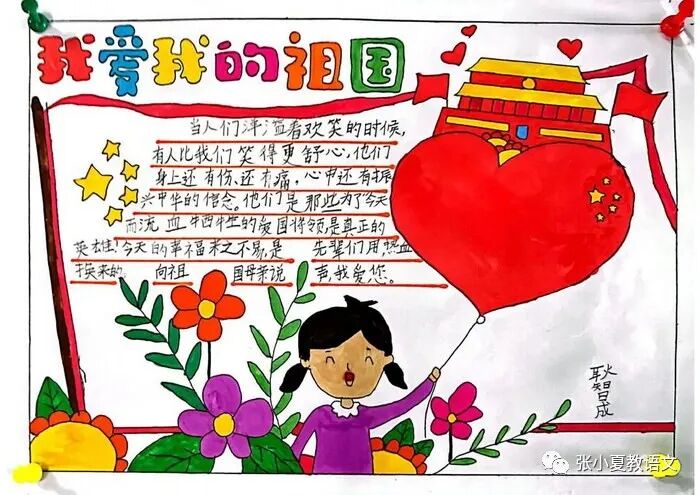 我爱我的祖国
当人们洋溢着欢笑的时候,
有人比我们笑得更舒心,他们
身上还有伤、还有痛,心中还有振
兴中华的信念。他们是那些为了今天
而流血牺牲的爱国将领,是真正的
英雄!今天的幸福来之不易,是先辈们用热血
换来的。向祖国母亲说声,我爱您。
耿智成
张小夏教语文